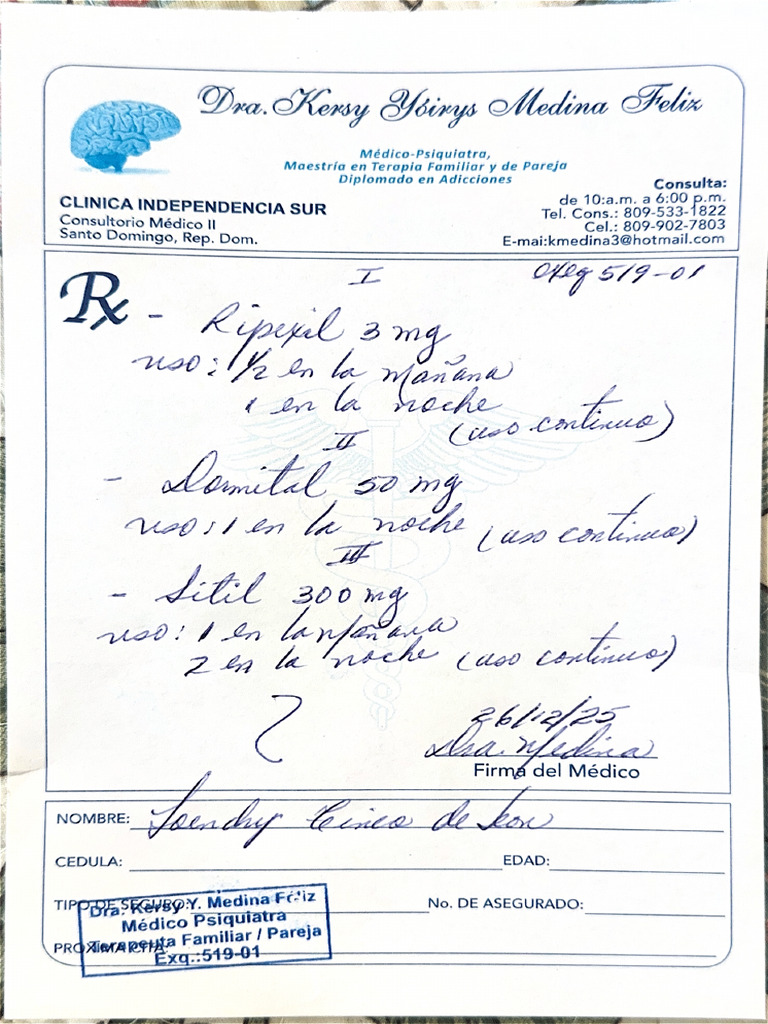 Dra. Kersy Ybirys Medina Feliz
Médico-Psiquiatra,
Maestría en Terapia Familiar y de Pareja
Diplomado en Adicciones
CLINICA INDEPENDENCIA SUR
Consultorio Médico II
Santo Domingo, Rep. Dom.
Consulta:
de 10:a.m. a 6:00 p.m.
Tel. Cons.: 809-533-1822
Cel.: 809-902-7803
E-mai:kmedina3@hotmail.com
Rx
I
519-01
- Ripexil 3 mg
uso: 1/2 en la mañana
1 en la noche
(uso continuo)
II
- Dormital 50 mg
uso: 1 en la noche (uso continuo)
III
- Sitil 300 mg
uso: 1 en la mañana
2 en la noche (uso continuo)
26/12/25
Dra. Medina
Firma del Médico
NOMBRE: de Leon
CEDULA: EDAD:
TIPO DE SEGURO: No. DE ASEGURADO:
PROXIMA CITA:
Dra. Kersy Y. Medina Féliz
Médico Psiquiatra
Terapeuta Familiar / Pareja
Exq.:519-01